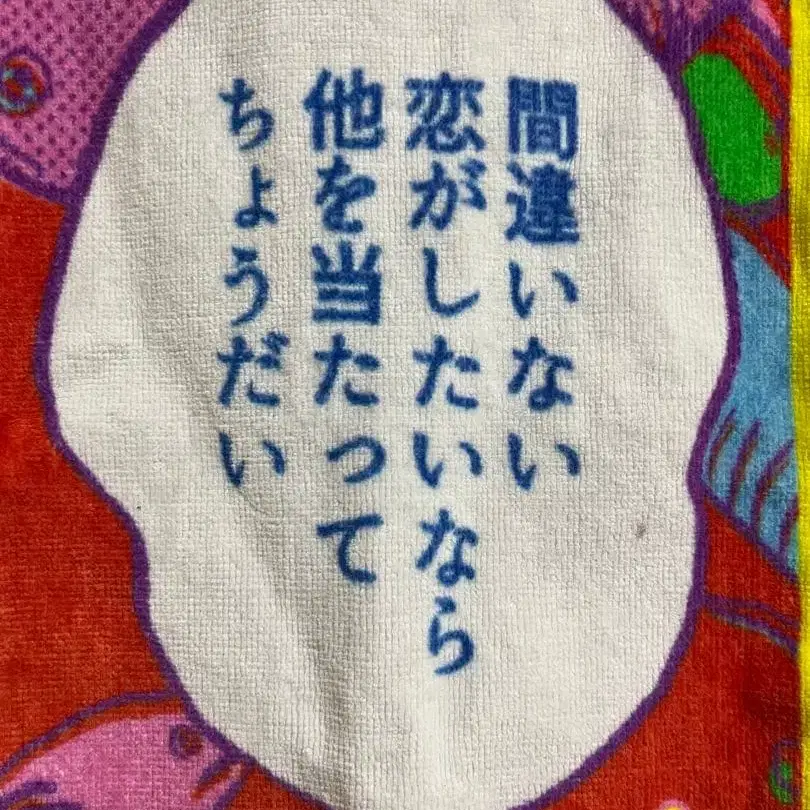 間違いない
恋がしたいなら
他を当たって
ちょうだい